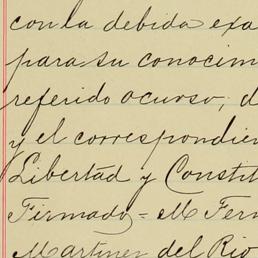 con la debida exa
para su conocim
referido ocurso, d
y el correspondien
Libertad y Constit
Firmado = M Fern
Martinez del Rio